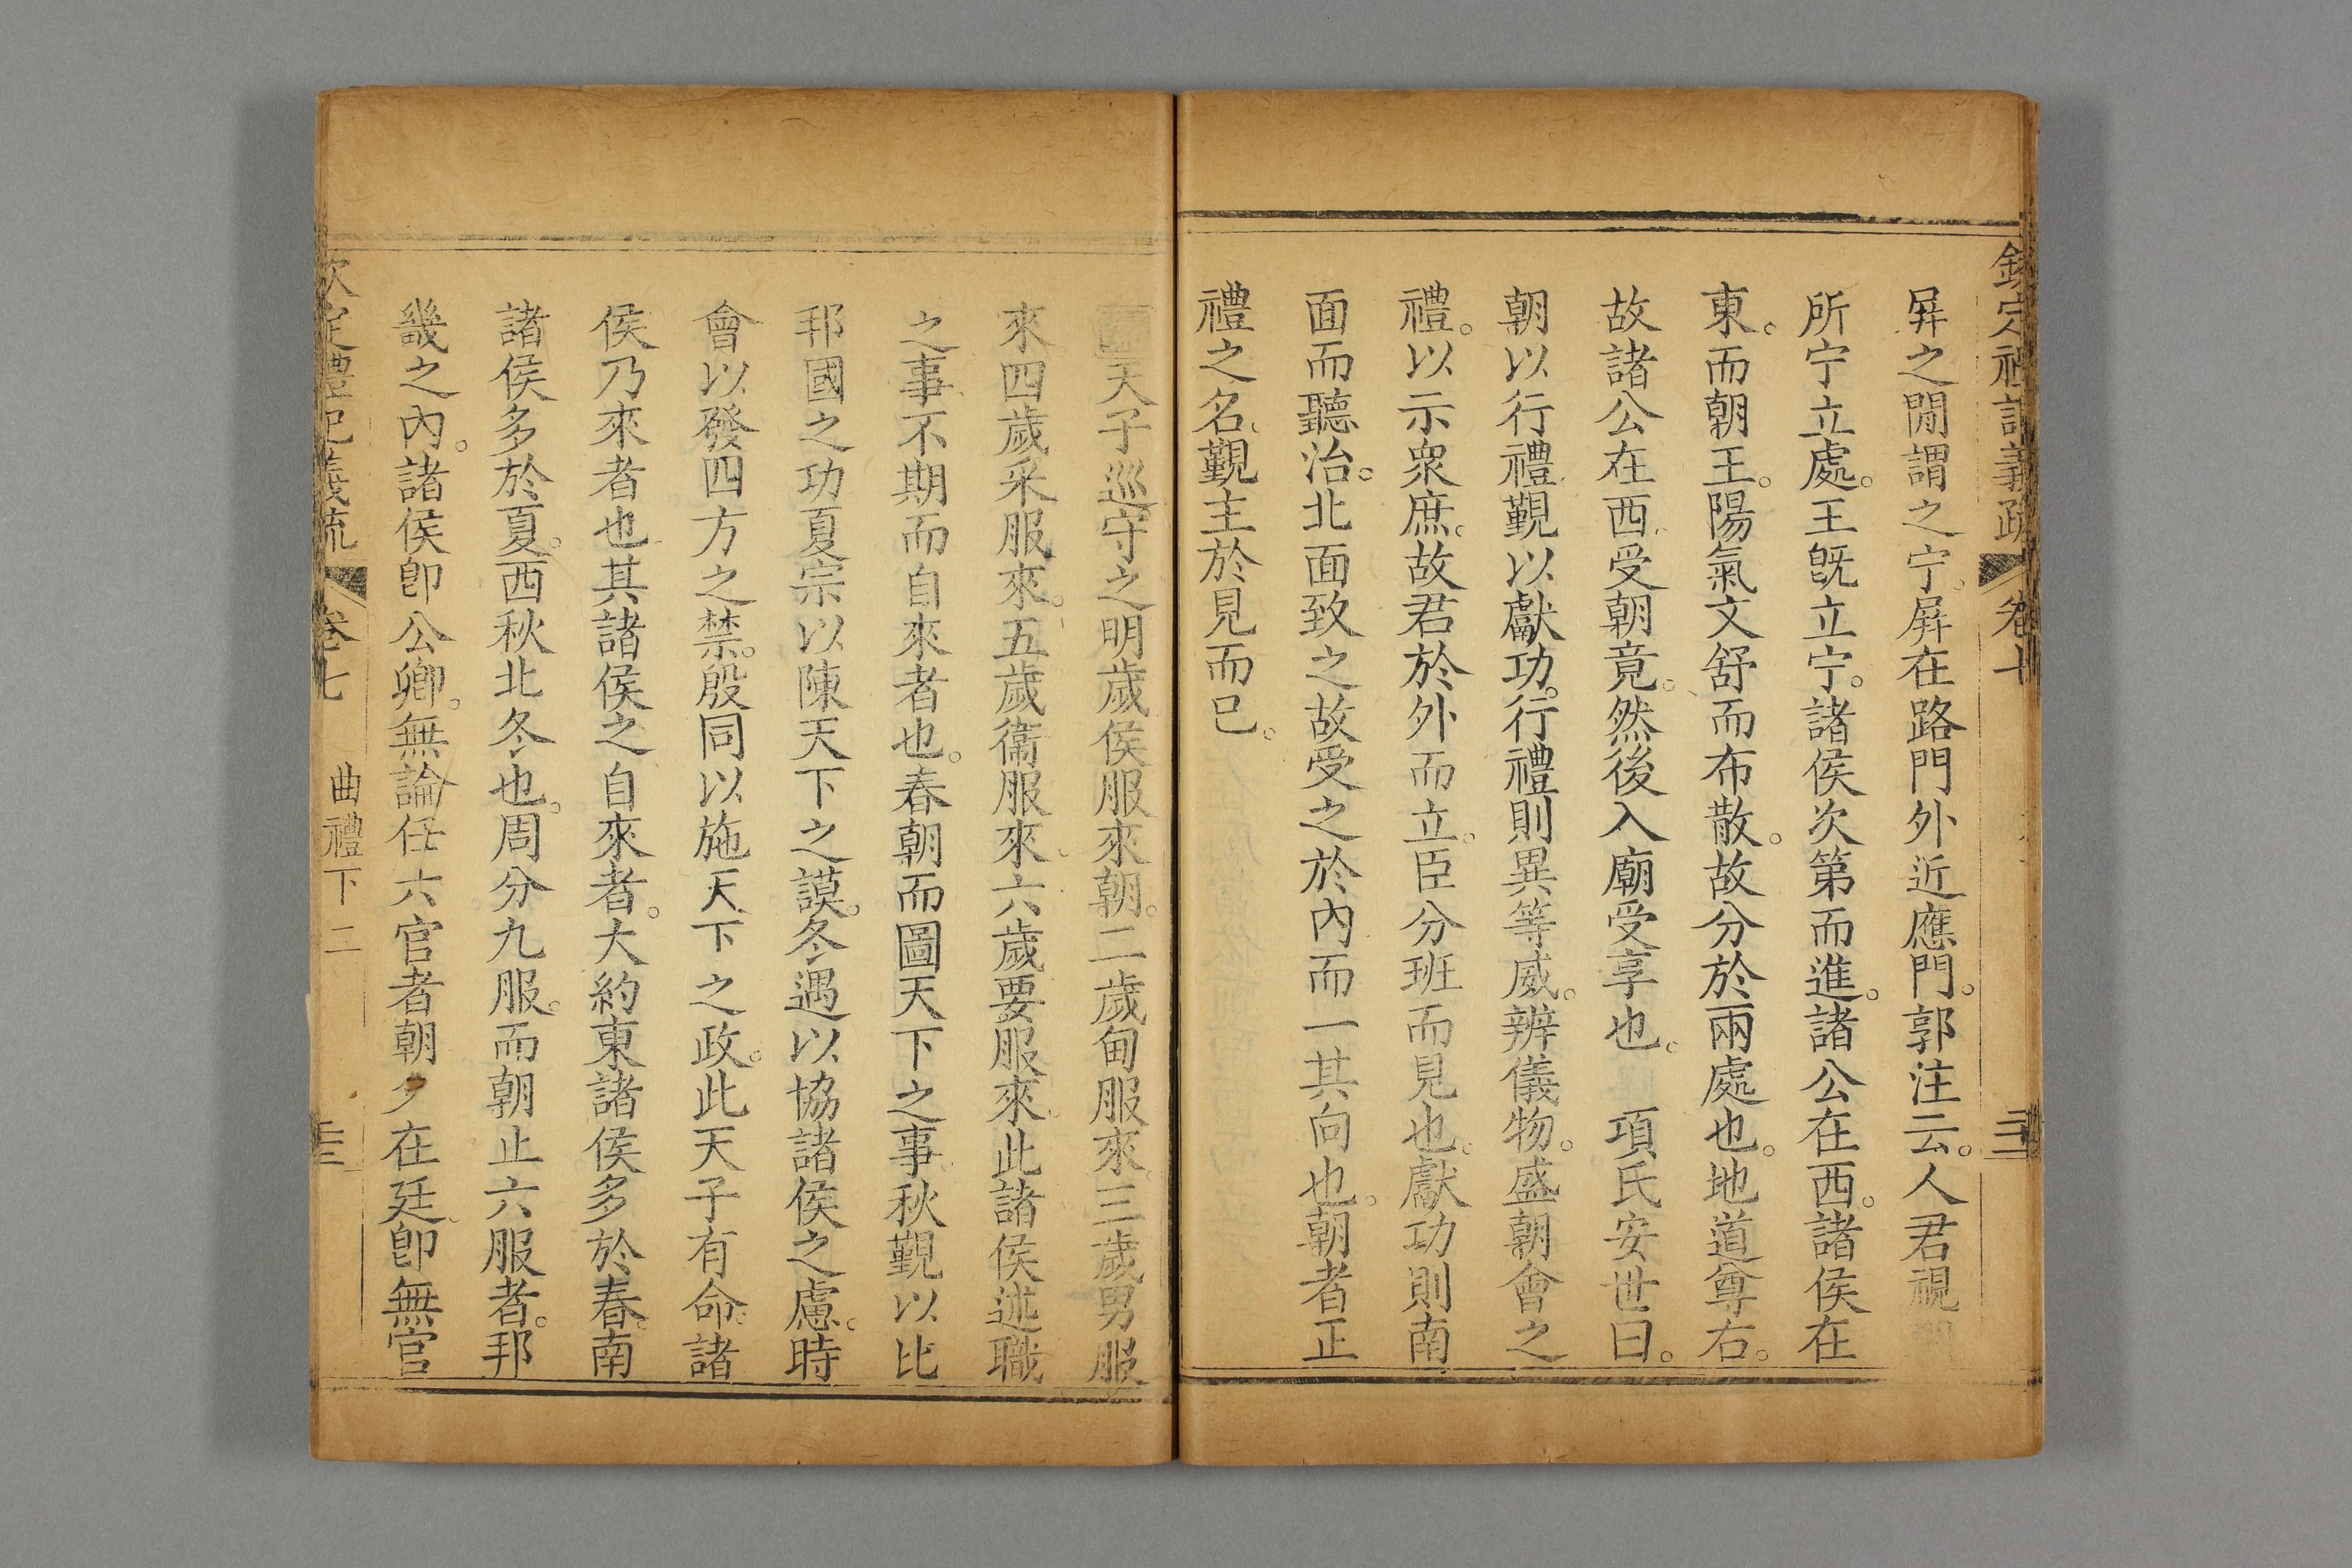 欽定禮記義疏 卷七
屛之閒謂之宁。屛在路門外近應門。郭注云。人君視
所宁立處。王旣立宁。諸侯次第而進。諸公在西。諸侯在
東。而朝王。陽氣文舒而布散。故分於兩處也。地道尊右。
故諸公在西。受朝竟。然後入廟受享也。 項氏安世曰。
朝以行禮。覲以獻功。行禮則異等威。辨儀物。盛朝會之
禮。以示衆庶。故君於外而立。臣分班而見也。獻功則南
面而聽治。北面致之故受之於內而一其向也。朝者正
禮之名。覲主於見而已。
天子巡守之明歲侯服來朝。二歲甸服來。三歲男服
來四歲采服來。五歲衞服來。六歲要服來。此諸侯述職
之事。不期而自來者也。春朝而圖天下之事。秋覲以比
邦國之功夏宗以陳天下之謨。冬遇以協諸侯之慮。時
會以發四方之禁。殷同以施天下之政。此天子有命。諸
侯乃來者也。其諸侯之自來者。大約東諸侯多於春。南
諸侯多於夏。西秋北冬也。周分九服。而朝止六服者。邦
畿之內。諸侯卽公卿。無論任六官者朝夕在廷。卽無官
欽定禮記義疏 卷七 曲禮下二